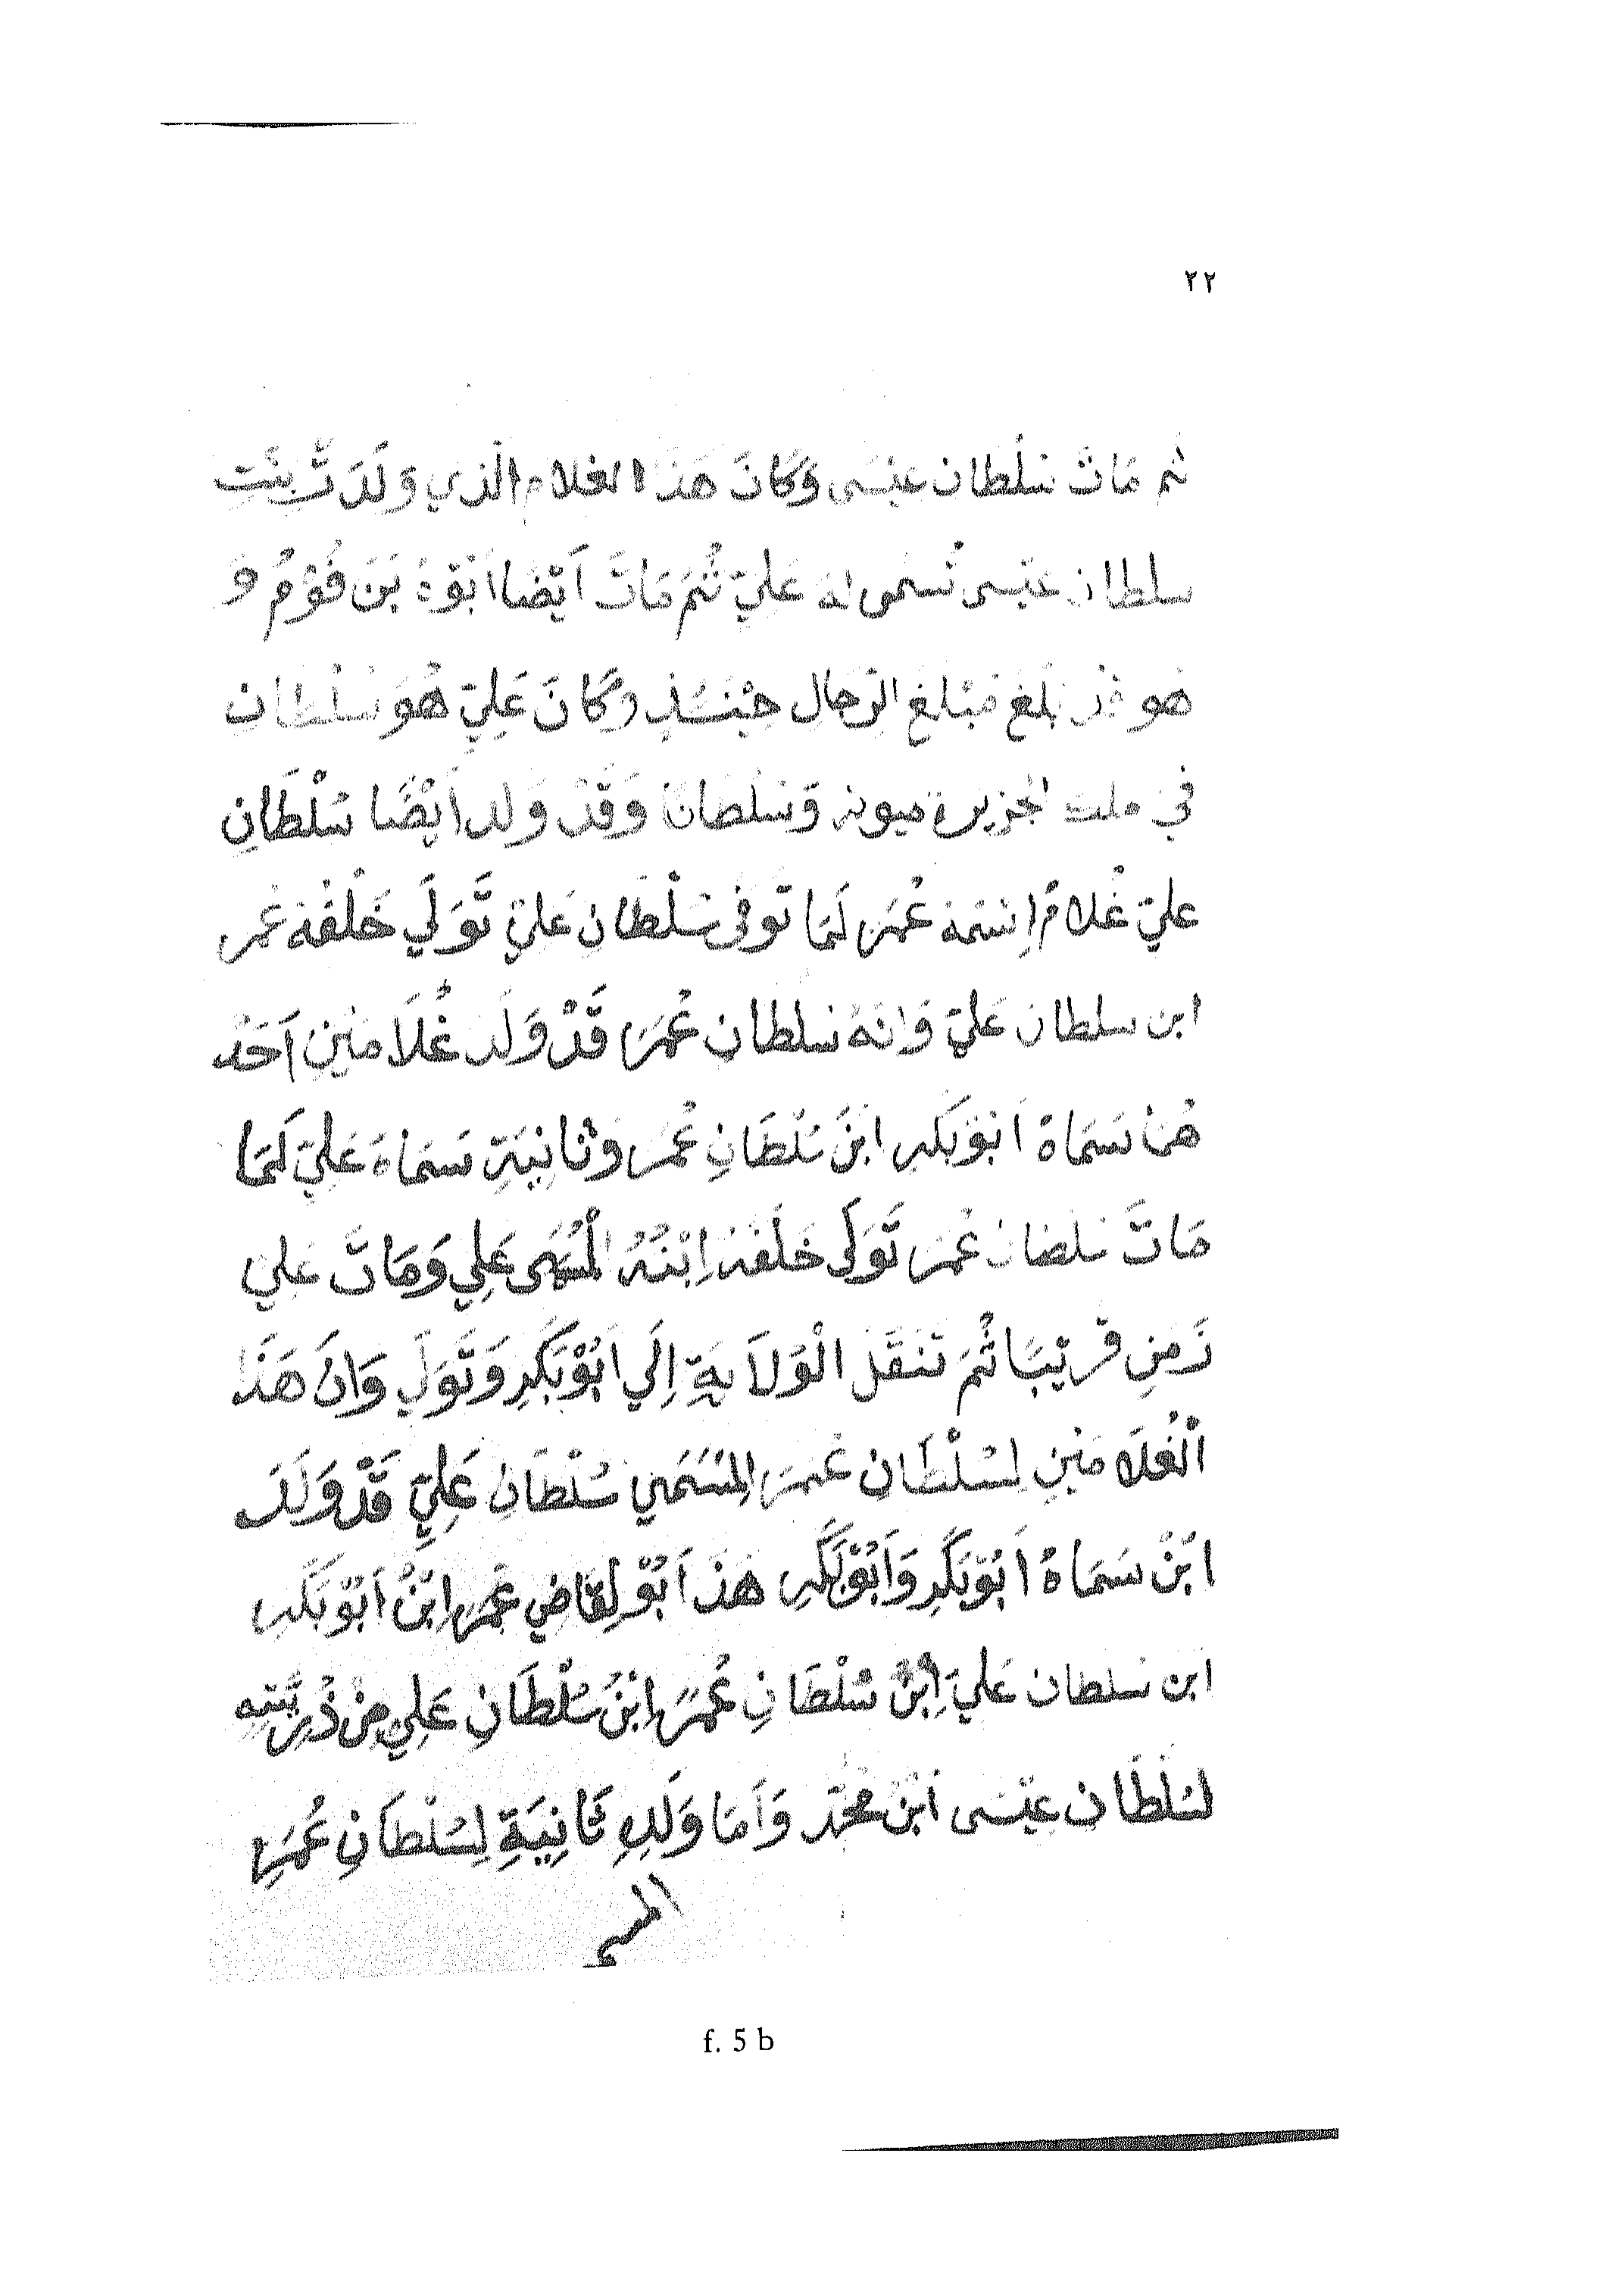 ٢٢
ثم مَاتَ سُلْطان عيسَى وَكَانَ هَذَا الغلام الَّذي وَلَدَتْ بِنْتِ
سلطان عيْسى تُسَمى لهُ عَليّ ثُمَ مَاتَ أَيْضَا ابَوْهُ بَنَ فُوْمُ وَ
هُو قد بَلَغ مَبْلغ الرّجال حِيْنَئذٍ وَكَانَ عَلِيّ هُوَ سُلْطان
في ملك الجزيرة ميونه وَسُلْطانًا وَقَدْ وَلد أَيْضًا سُلْطَانِ
عليّ غُلَامٌ اِسْمَهُ عُمَر لَمَا تَوفى سُلْطانِ عَليّ تَوَلَي خَلْفَهُ عُمر
ابن سلطان عَليّ وَانَهُ سُلطان عُمَرَ قَدْ وَلَد غُلَامَيْنِ اَحَدُ
هُمَا سَمَاهُ اَبُوْبَكَرِ ابْنَ سُلْطَانِ عُمَرَ وَثَانِيَةِ سَمَاهُ عَلِيّ لَمَا
مَاتَ سُلطان عُمَر تَوَلَى خَلْفَهُ اِبْنُهُ الْمُسَمَى عَلِي وَمَاتَ عَلي
زَمنِ قَريْبًا ثُمَ تَنَقَلَ الْوَلَايَةِ اِلَي اَبُوْبَكَرِ وَتَوَلَي وَانَ هَذَا
الْغُلَامَيْنِ لسُلْطَانِ عُمَرَ الْمُسَمَي سُلْطَانِ عَلِيّ قَدْ وَلَدَ
ابْنُ سَمَاهُ اَبُوْبَكَرِ وَاَبُوْبَكَرِ هَذَ اَبُوْ لِقَاضِي عُمَرِ ابْنُ اَبُوْبَكَرِ
ابن سُلطان عَليّ اِبْنُ سُلْطَانِ عُمَرَ اِبْنُ سُلْطَانِ عَلِيِ مِنْ ذُرِيَّتِهِ
لسُلْطَان عِيْسى ابْنُ مُحَمَّد وَاَمَا وَلَدِ ثَانِيَةِ لِسُلْطَانِ عُمَرِ
المسمى
f. 5 b